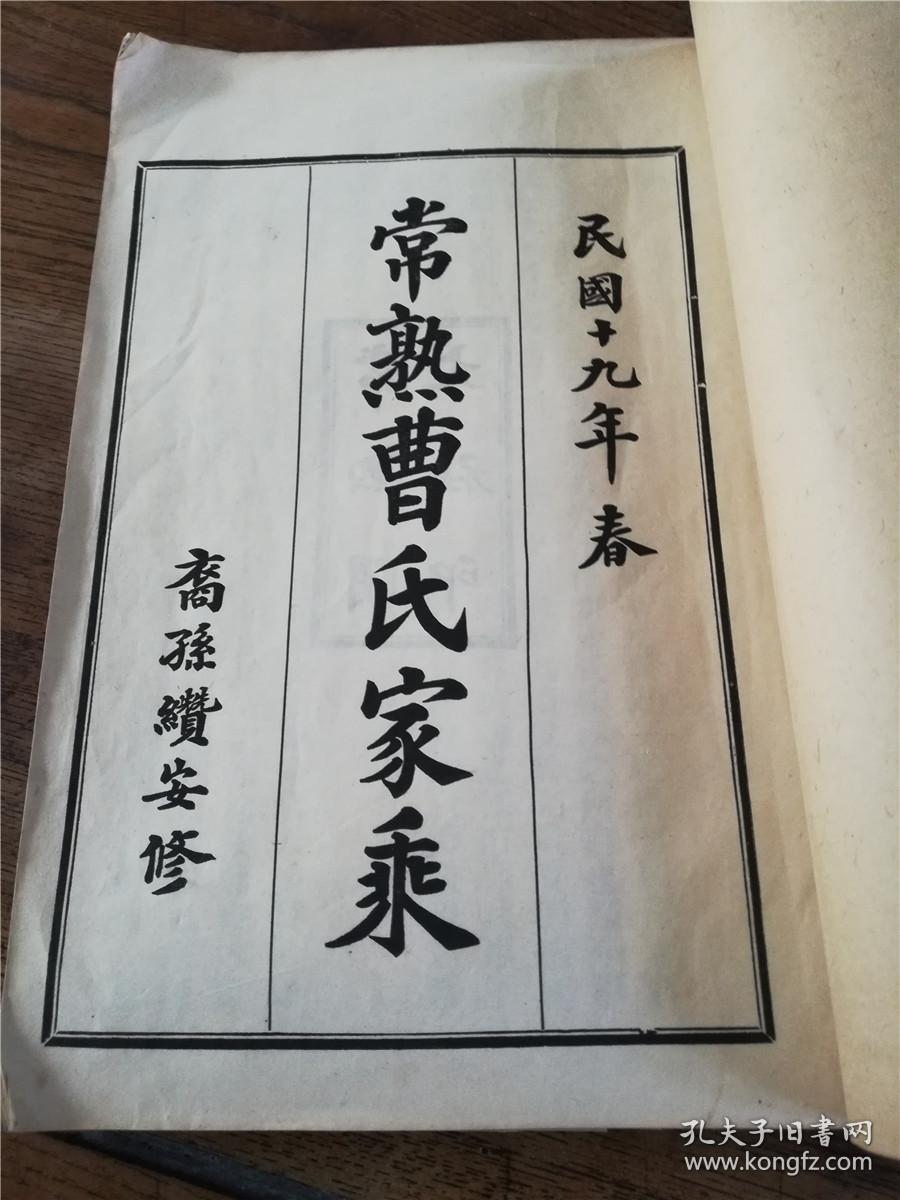 民國十九年春
常熟曹氏家乘
裔孫纘安修
孔夫子旧书网
www.kongfz.com